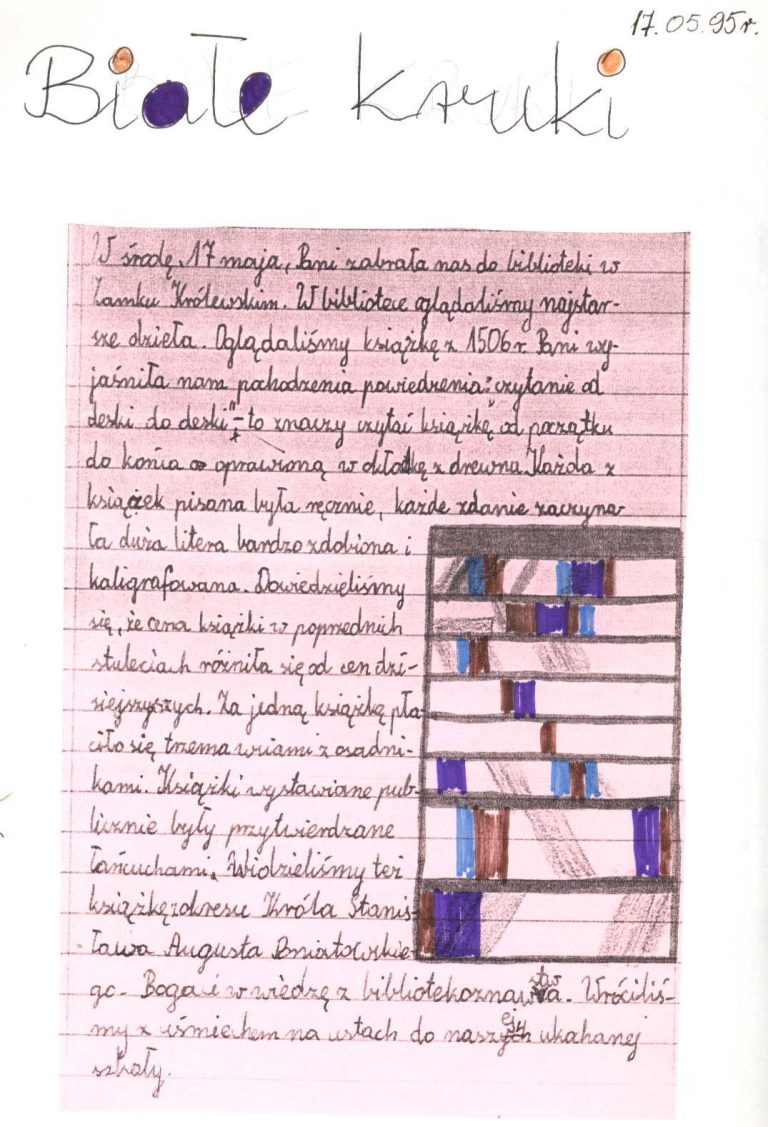 17.05.95r.
Białe kruki
W środę, 17 maja, Pani zabrała nas do biblioteki w
Zamku Królewskim. W bibliotece oglądaliśmy najstar-
sze dzieła. Oglądaliśmy książkę z 1506 r. Pani wy-
jaśniła nam pochodzenia powiedzenia: "czytanie od
deski do deski" - to znaczy czytać książkę od początku
do końca oprawioną w okładkę z drewna. Każda z
książek pisana była ręcznie, każde zdanie zaczyna
ła duża litera bardzo zdobiona i
kaligrafowana. Dowiedzieliśmy
się, że cena książki w poprzednich
stuleciach różniła się od cen dzi-
siejszyszych. Za jedną książkę pła-
ciło się trzema wsiami z osadni-
kami. Książki wystawiane pub-
licznie były przytwierdzane
łańcuchami. Widzieliśmy też
książkę z okresu Króla Stanis-
ława Augusta Poniatowskie-
go. Bogaci w wiedzę z bibliotekoznawstwa. Wróciliś-
my z uśmiechem na ustach do naszej ukahanej
szkoły.